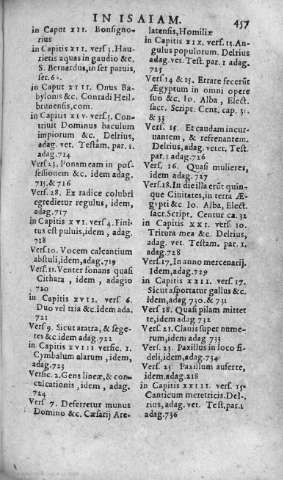 IN ISAIAM. 457
in Caput XII. Bonsigno-
rius
in Capitis XII. vers 3. Hau-
rietis aquas in gaudio &c.
S. Bernardus, in ser paruis,
ser. 6.
in Caput XIII. Onus Ba-
bylonis &c. Conradi Heil-
bruuensi, com.
in Capitis XIV. vers 5. Con-
triuit Dominus baculum
impiorum &c. Delrius,
ad. vet. Testam. par. 1.
adag. 714
Vers 23. Ponam eam in pos-
sessionem &c. idem adag.
715, & 716
Vers. 28. Ex radice colubri
egredietur regulus, idem,
adag. 717
in Capitis XVI. vers 4. Fini-
tus est puluis, idem, adag.
718
Vers 10. Vocem calcantium
abstuli, idem, adag. 719
Vers 11. Venter sonans quasi
Cithara, idem, adagio
720
in Capitis XVII. vers 6.
Duo vel tria &c. idem ada.
721
Vers 9. Sicut aratra, & sege-
tes &c idem adag. 722
in Capitis XVIII versic 1.
Cymbalum alarum, idem,
adag. 723
Versic. 2. Gens lineæ, & con-
culcationis, idem, adag.
724
Vers 7. Deferretur munus
Domino &c. Cæsarij Are-
latensis, Homiliæ
in Capitis XIX. vers 13. An-
gulus populorum. Delrius
adag. vet. Test. par. 1 adag.
725
Vers 14 & 23. Errare fecerut
Ægyptum in omni opere
suo &c. Io. Alba, Elect.
sacr. Script. Cent. cap. 31.
& 33
Vers. 15. Et caudam incur-
uantem, & refrenantem.
Delrius, adag. veter. Test.
par. 1 adag. 726
Vers 16. Quasi mulieres,
idem adag. 727
Vers 18. In die illa erūt quin-
que Ciuitates, in terra Æ-
gypti &c Io. Alba, Elect.
sacr. Script. Centur ca. 32
in Capitis XXI. vers 10.
Tritura mea &c. Delrius,
adag. vet Testam. par. 1.
adag. 728
Vers 17. In anno mercenarij.
Idem, adag. 729
in Capitis XXII. vers 17.
Sicut asportatur gallus &c.
idem, adag. 730. & 731
Vers 18. Quasi pilam mittet
te, idem adag. 732
Vers 21. Clauis super nume-
rum, idem adag. 733
Vers 23. Paxillus in loco fi-
deli, idem, adag. 734
Vers 25 Paxillum auferte,
idem. adag. 218
in Capitis XXIII. vers. 15.
Canticum meretricis. Del-
rius, adag. vet. Test, par. 1
adag. 736